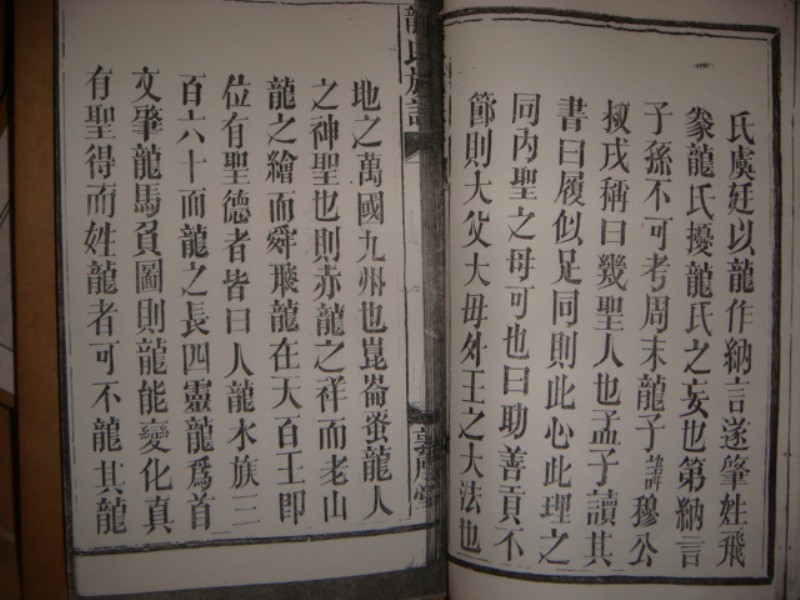 氏虞廷以龍作納言遂肇姓飛
豢龍氏擾龍氏之妄也第納言
子孫不可考周末龍子諱穆公
極戎稱曰幾聖人也孟子讀其
書曰履似足同則此心此理之
同內聖之母可也曰助善貢不
節則大父大母外王之大法也
龍氏族譜
地之萬國九州也崑崙蚤龍人
之神聖也則赤龍之祥而老山
龍之繪而舜飛龍在天百王即
位有聖德者皆曰人龍水族三
百六十而龍之長四靈龍爲首
文肇龍馬負圖則龍能變化真
有聖得而姓龍者可不龍其龍